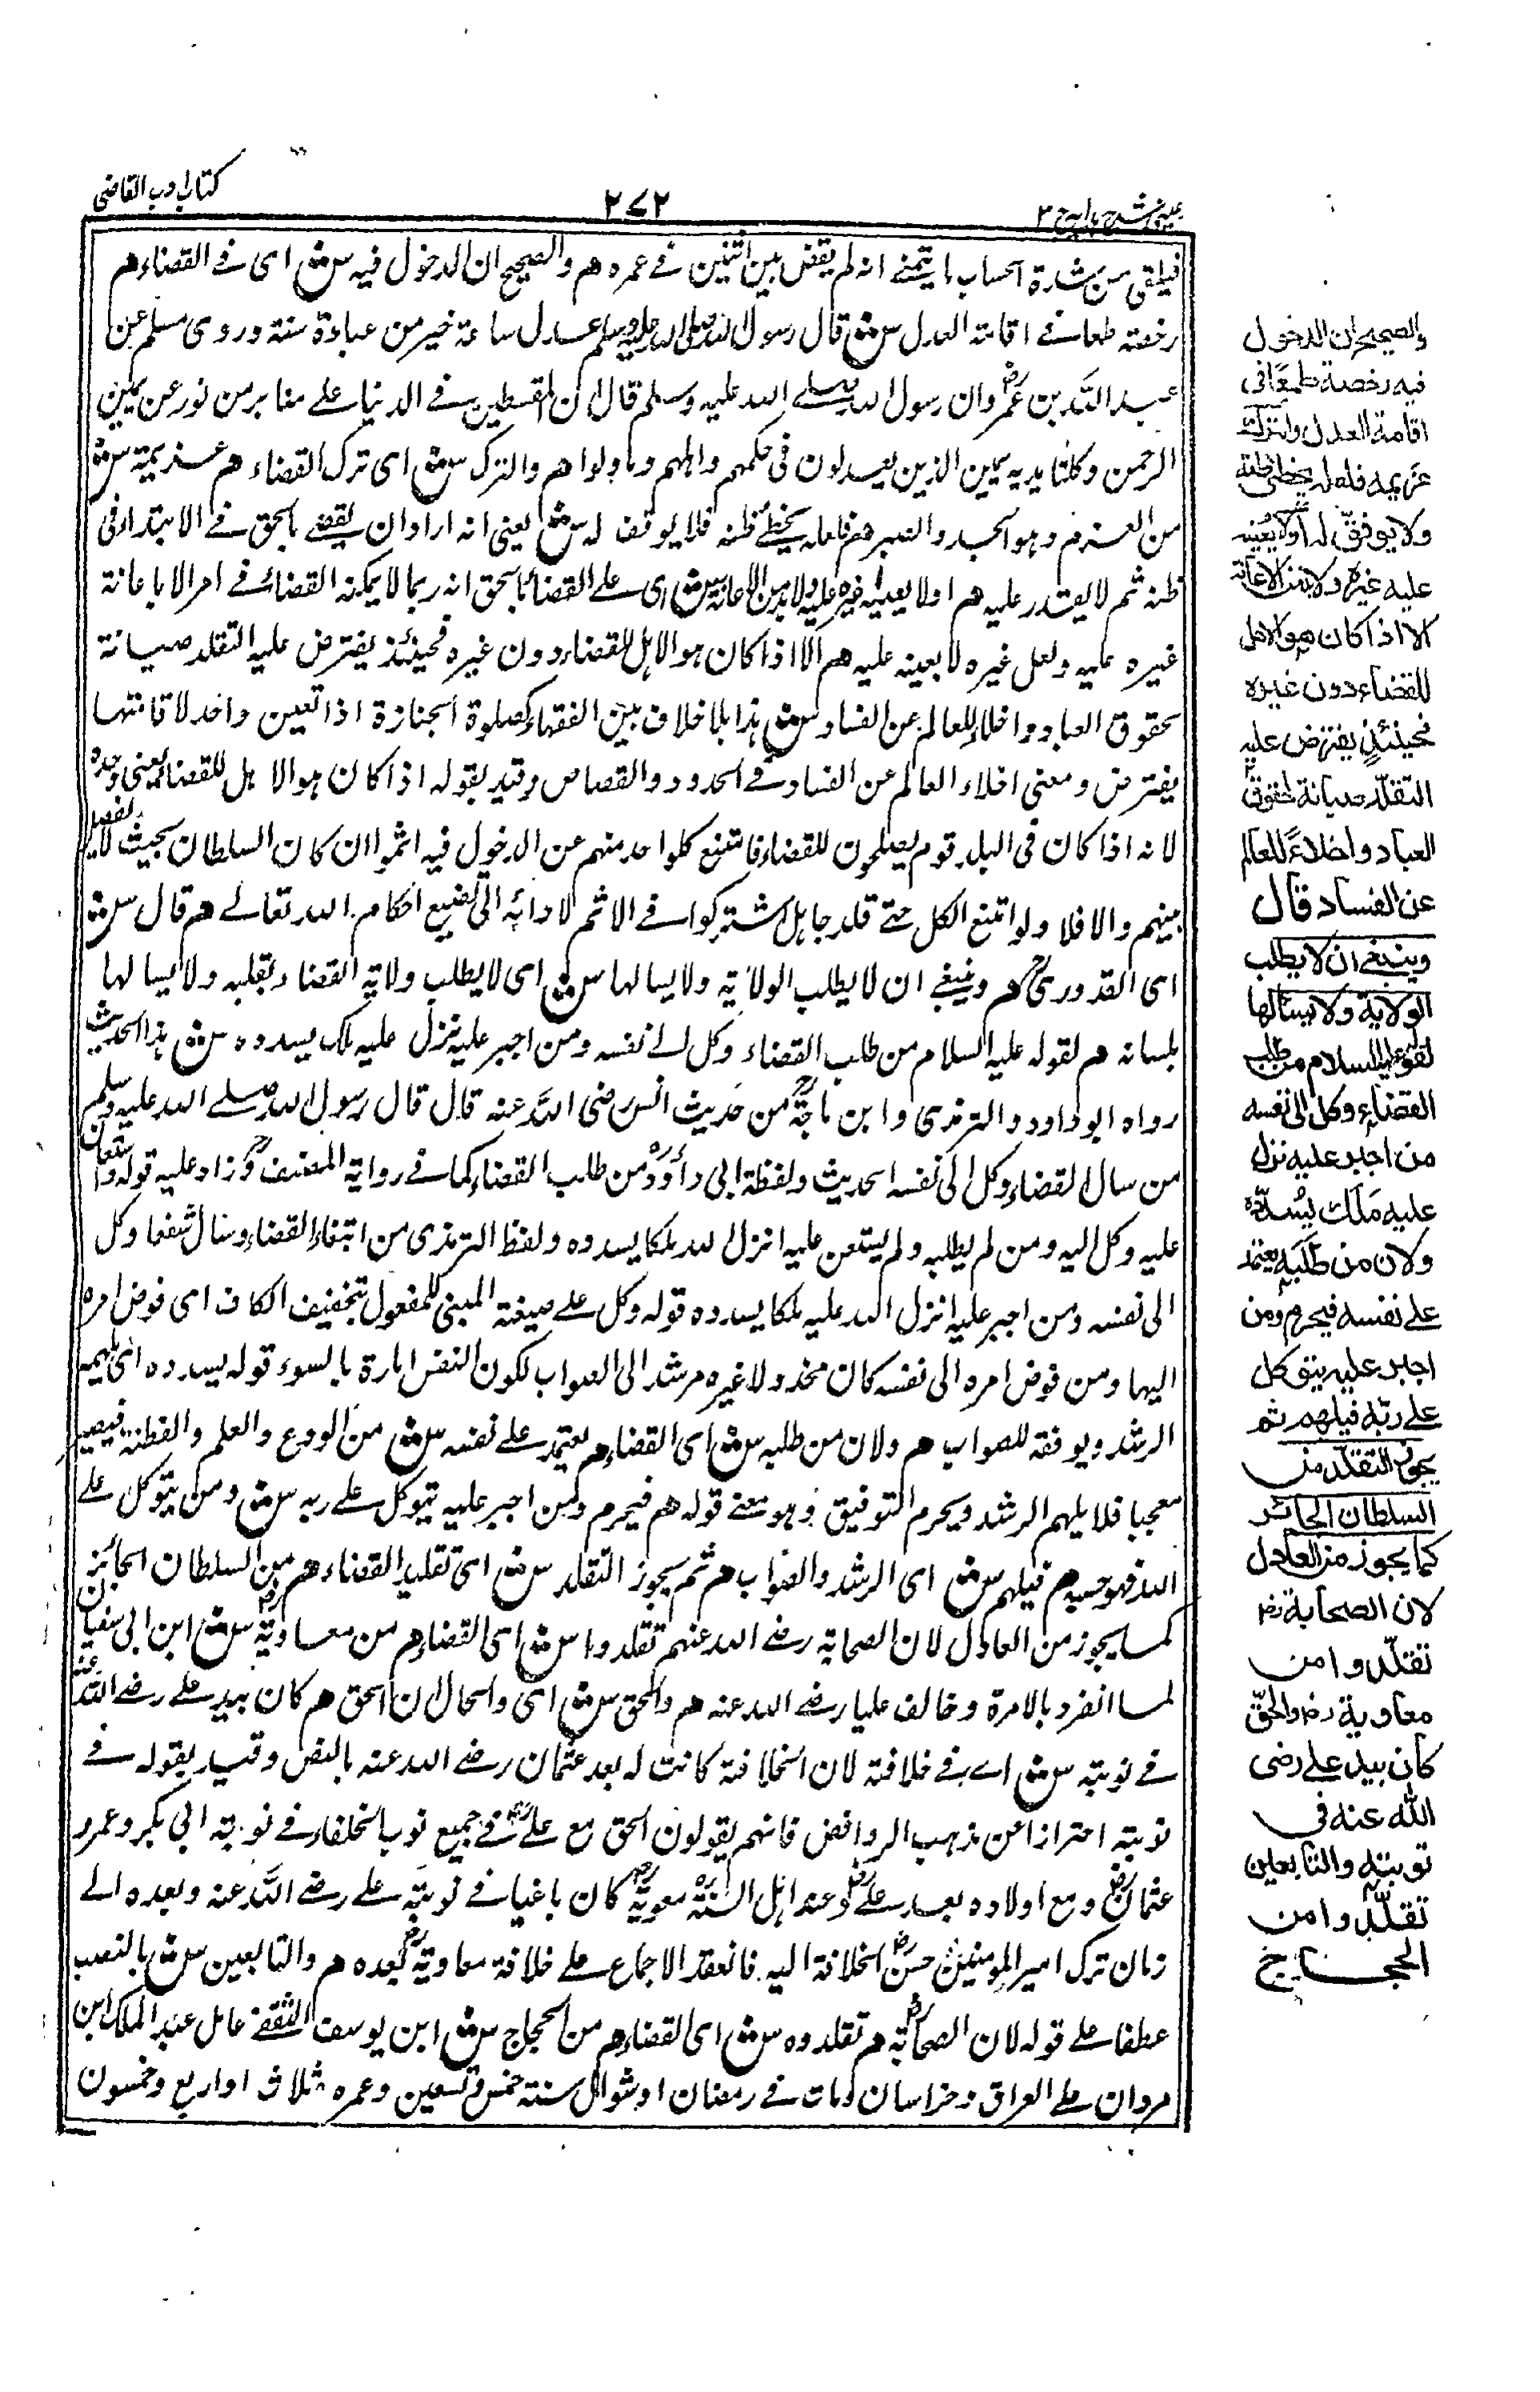 كتاب ادب القاضى
٢٧٢
عينى شرح هدايه ج ٣
فيلقى من شدة الحساب ما يتمنے انه لم يقض بين اثنين فے عمره هم والصحيح ان الدخول فيه ش اى فے القضاء هم
رخصة طمعا فے اقامة العدل ش قال رسول الله صلى الله عليه وسلم عدل ساعة خير من عبادة سنة وروى مسلم عن
عبد الله بن عمرو ان رسول الله صلے الله عليه وسلم قال ان المقسطين فے الدنيا علے منابر من نور عن يمين
الرحمن وكلتا يديه يمين الذين يعدلون فى حكمهم واهلهم وما ولوا هم والترك ش اى ترك القضاء هم عزيمة ش
من العزم وهو الجد والصبر هم فلعله يخطئ ظنه فلا يوفق له ش يعنى انه اراد ان يقضے بالحق فے الابتداء فى
ظنه ثم لا يقدر عليه هم او لا يعينه غيره عليه ولا بد من الاعانة ش اى علے القضاء بالحق انه ربما لا يمكنه القضاء فے امر الا باعانة
غيره عليه ولعل غيره لا يعينه عليه هم الا اذا كان هو الاهل للقضاء دون غيره فحينئذ يفترض عليه التقلد صيانة
لحقوق العباد واخلاء للعالم عن الفساد ش هذا بلا خلاف بين الفقهاء كصلوة الجنازة اذا تعين واحد لاقامتها
يفترض ومعنى اخلاء العالم عن الفساد فے الحدود والقصاص وقيد بقوله اذا كان هو الاهل للقضاء يعنى وحده
لانه اذا كان فى البلد قوم يصلحون للقضاء فامتنع كل واحد منهم عن الدخول فيه اثموا ان كان السلطان بحيث لا يفصل
بينهم والا فلا ولو امتنع الكل حتے قلد جاهل اشتركوا فے الاثم لادائه الى تضييع احكام الله تعالے هم قال ش
اى القدورى هم وينبغے ان لا يطلب الولاية ولا يسالها ش اى لا يطلب ولاية القضاء بقلبه ولا يسالها
بلسانه هم لقوله عليه السلام من طلب القضاء وكل الے نفسه ومن اجبر عليه نزل عليه ملك يسدده ش هذا الحديث
رواه ابو داود والترمذى وابن ماجة من حديث انس رضى الله عنه قال قال رسول الله صلے الله عليه وسلم
من سال القضاء وكل الى نفسه الحديث ولفظة ابى داؤد من طلب القضاء كما فے رواية المصنف وزاد عليه قوله واستعان
عليه وكل اليه ومن لم يطلبه ولم يستعن عليه انزل الله ملكا يسدده ولفظ الترمذى من ابتغاء القضاء وسال شفعا وكل
الى نفسه ومن اجبر عليه انزل الله عليه ملكا يسدده قوله وكل علے صيغة المبنى للمفعول بتخفيف الكاف اى فوض امره
اليها ومن فوض امره الى نفسه كان مخذولا غيره مرشد الى الصواب لكون النفس امارة بالسوء قوله يسدده اى يلهمه
الرشد ويوفقه للصواب هم ولان من طلبه ش اى القضاء هم يعتمد علے نفسه ش من الورع والعلم والفطنة فيصير
معجبا فلا يلهم الرشد ويحرم التوفيق وهو معنے قوله هم فيحرم ومن اجبر عليه يتوكل علے ربه ش ومن يتوكل علے
الله فهو حسبه هم فيلهم ش اى الرشد والصواب هم ثم يجوز التقلد ش اى تقليد القضاء هم من السلطان الجائز
كما يجوز من العادل لان الصحابة رضے الله عنهم تقلدوا ش اى القضاء هم من معاوية ش ابن ابى سفيان
لما انفرد بالامرة وخالف عليا رضے الله عنه هم والحق ش اى والحال ان الحق هم كان بيد علے رضے الله عنه
فے نوبته ش اے فے خلافته لان الخلافة كانت له بعد عثمان رضے الله عنه بالنص وقيد بقوله فے
نوبته احترازا عن مذهب الروافض فانهم يقولون الحق مع علے فے جميع نوب الخلفاء فے نوبة ابى بكر وعمر و
عثمان ومع اولاده بعد علے وعند اهل السنة معوية كان باغيا فے نوبة علے رضے الله عنه وبعده الے
زمان ترك امير المومنين حسن الخلافة اليه فانعقد الاجماع علے خلافة معاوية بعده هم والتابعين ش بالنصب
عطفا علے قوله لان الصحابة هم تقلدوه ش اى القضاء هم من الحجاج ش ابن يوسف الثقفے عامل عبد الملك ابن
مروان علے العراق وخراسان ومات فے رمضان او شوال سنة خمس وتسعين وعمره ثلاث او اربع وخمسون
والصحيح ان الدخول
فيه رخصة طمعًا فى
اقامة العدل والترك
عزيمة فلعله يخطئ ظنه
ولا يوفّق له أو لا يُعينه
عليه غيره ولا بد من الاعانة
الا اذا كان هو الاهل
للقضاء دون غيره
فحينئذٍ يفترض عليه
التقلّد صيانة لحقوق
العباد واخلاءً للعالم
عن الفساد قال
وينبغے ان لا يطلب
الولاية ولا يسألها
لقوله عليه السلام من طلب
القضاء وكل الى نفسه
من اجبر عليه نزل
عليه مَلَك يُسدّده
ولان من طلَبه يعتمد
علے نفسه فيحرم ومن
اجبر عليه يتوكل
علے ربّه فيلهم ثم
يجوز التقلّد من
السلطان الجائر
كما يجوز من العادل
لان الصحابة رضـ
تقلّدوا من
معاوية رضـ والحقّ
كان بيد علے رضى
الله عنه فى
نوبته والتابعين
تقلّدوا من
الحجاج